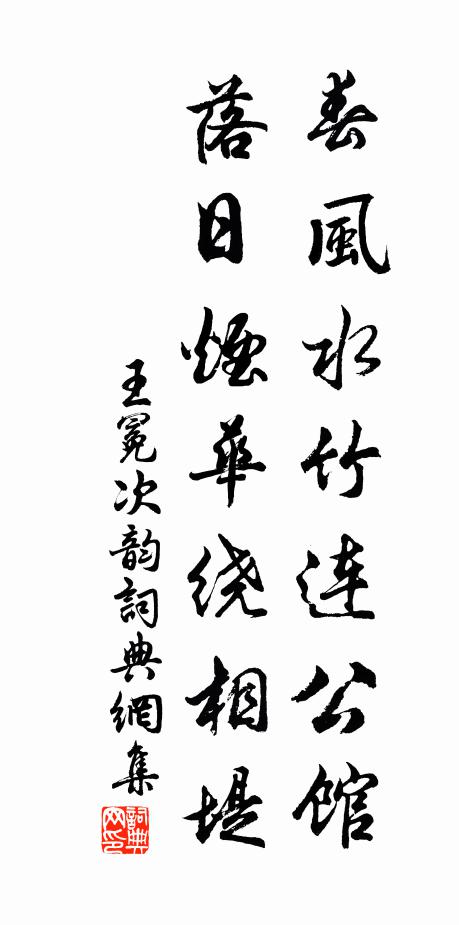 春風水竹連公館
落日煙華绕相堤
王冕次韵詞典網集
詞典网印